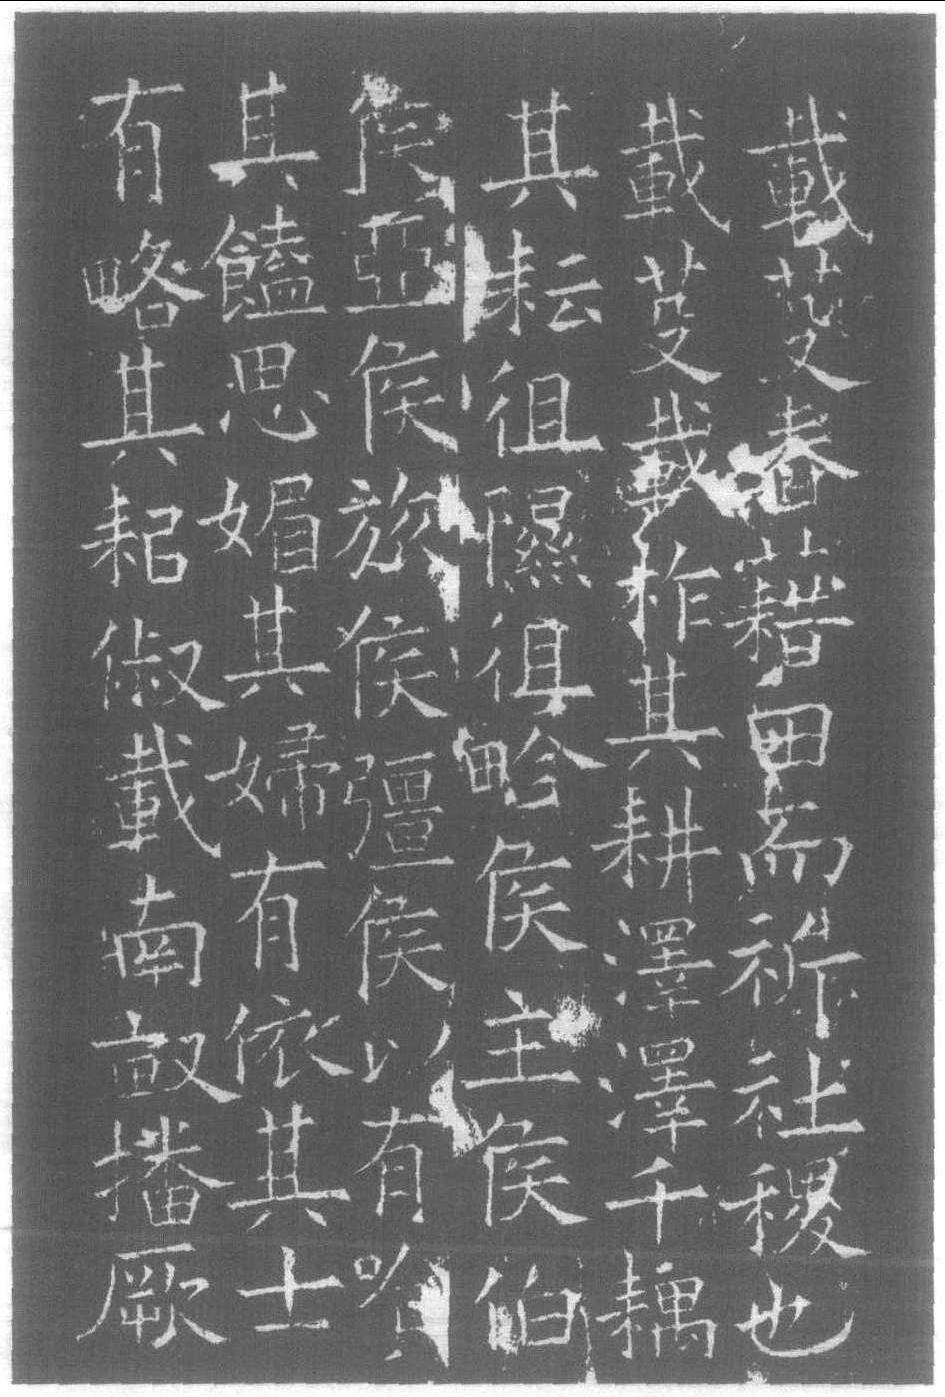 載芟春藉田而祈社稷也
載芟載柞其耕澤澤千耦
其耘徂隰徂畛侯主侯伯
侯亞侯旅侯彊侯以有嗿
其饁思媚其婦有依其士
有略其耜俶載南畝播厥